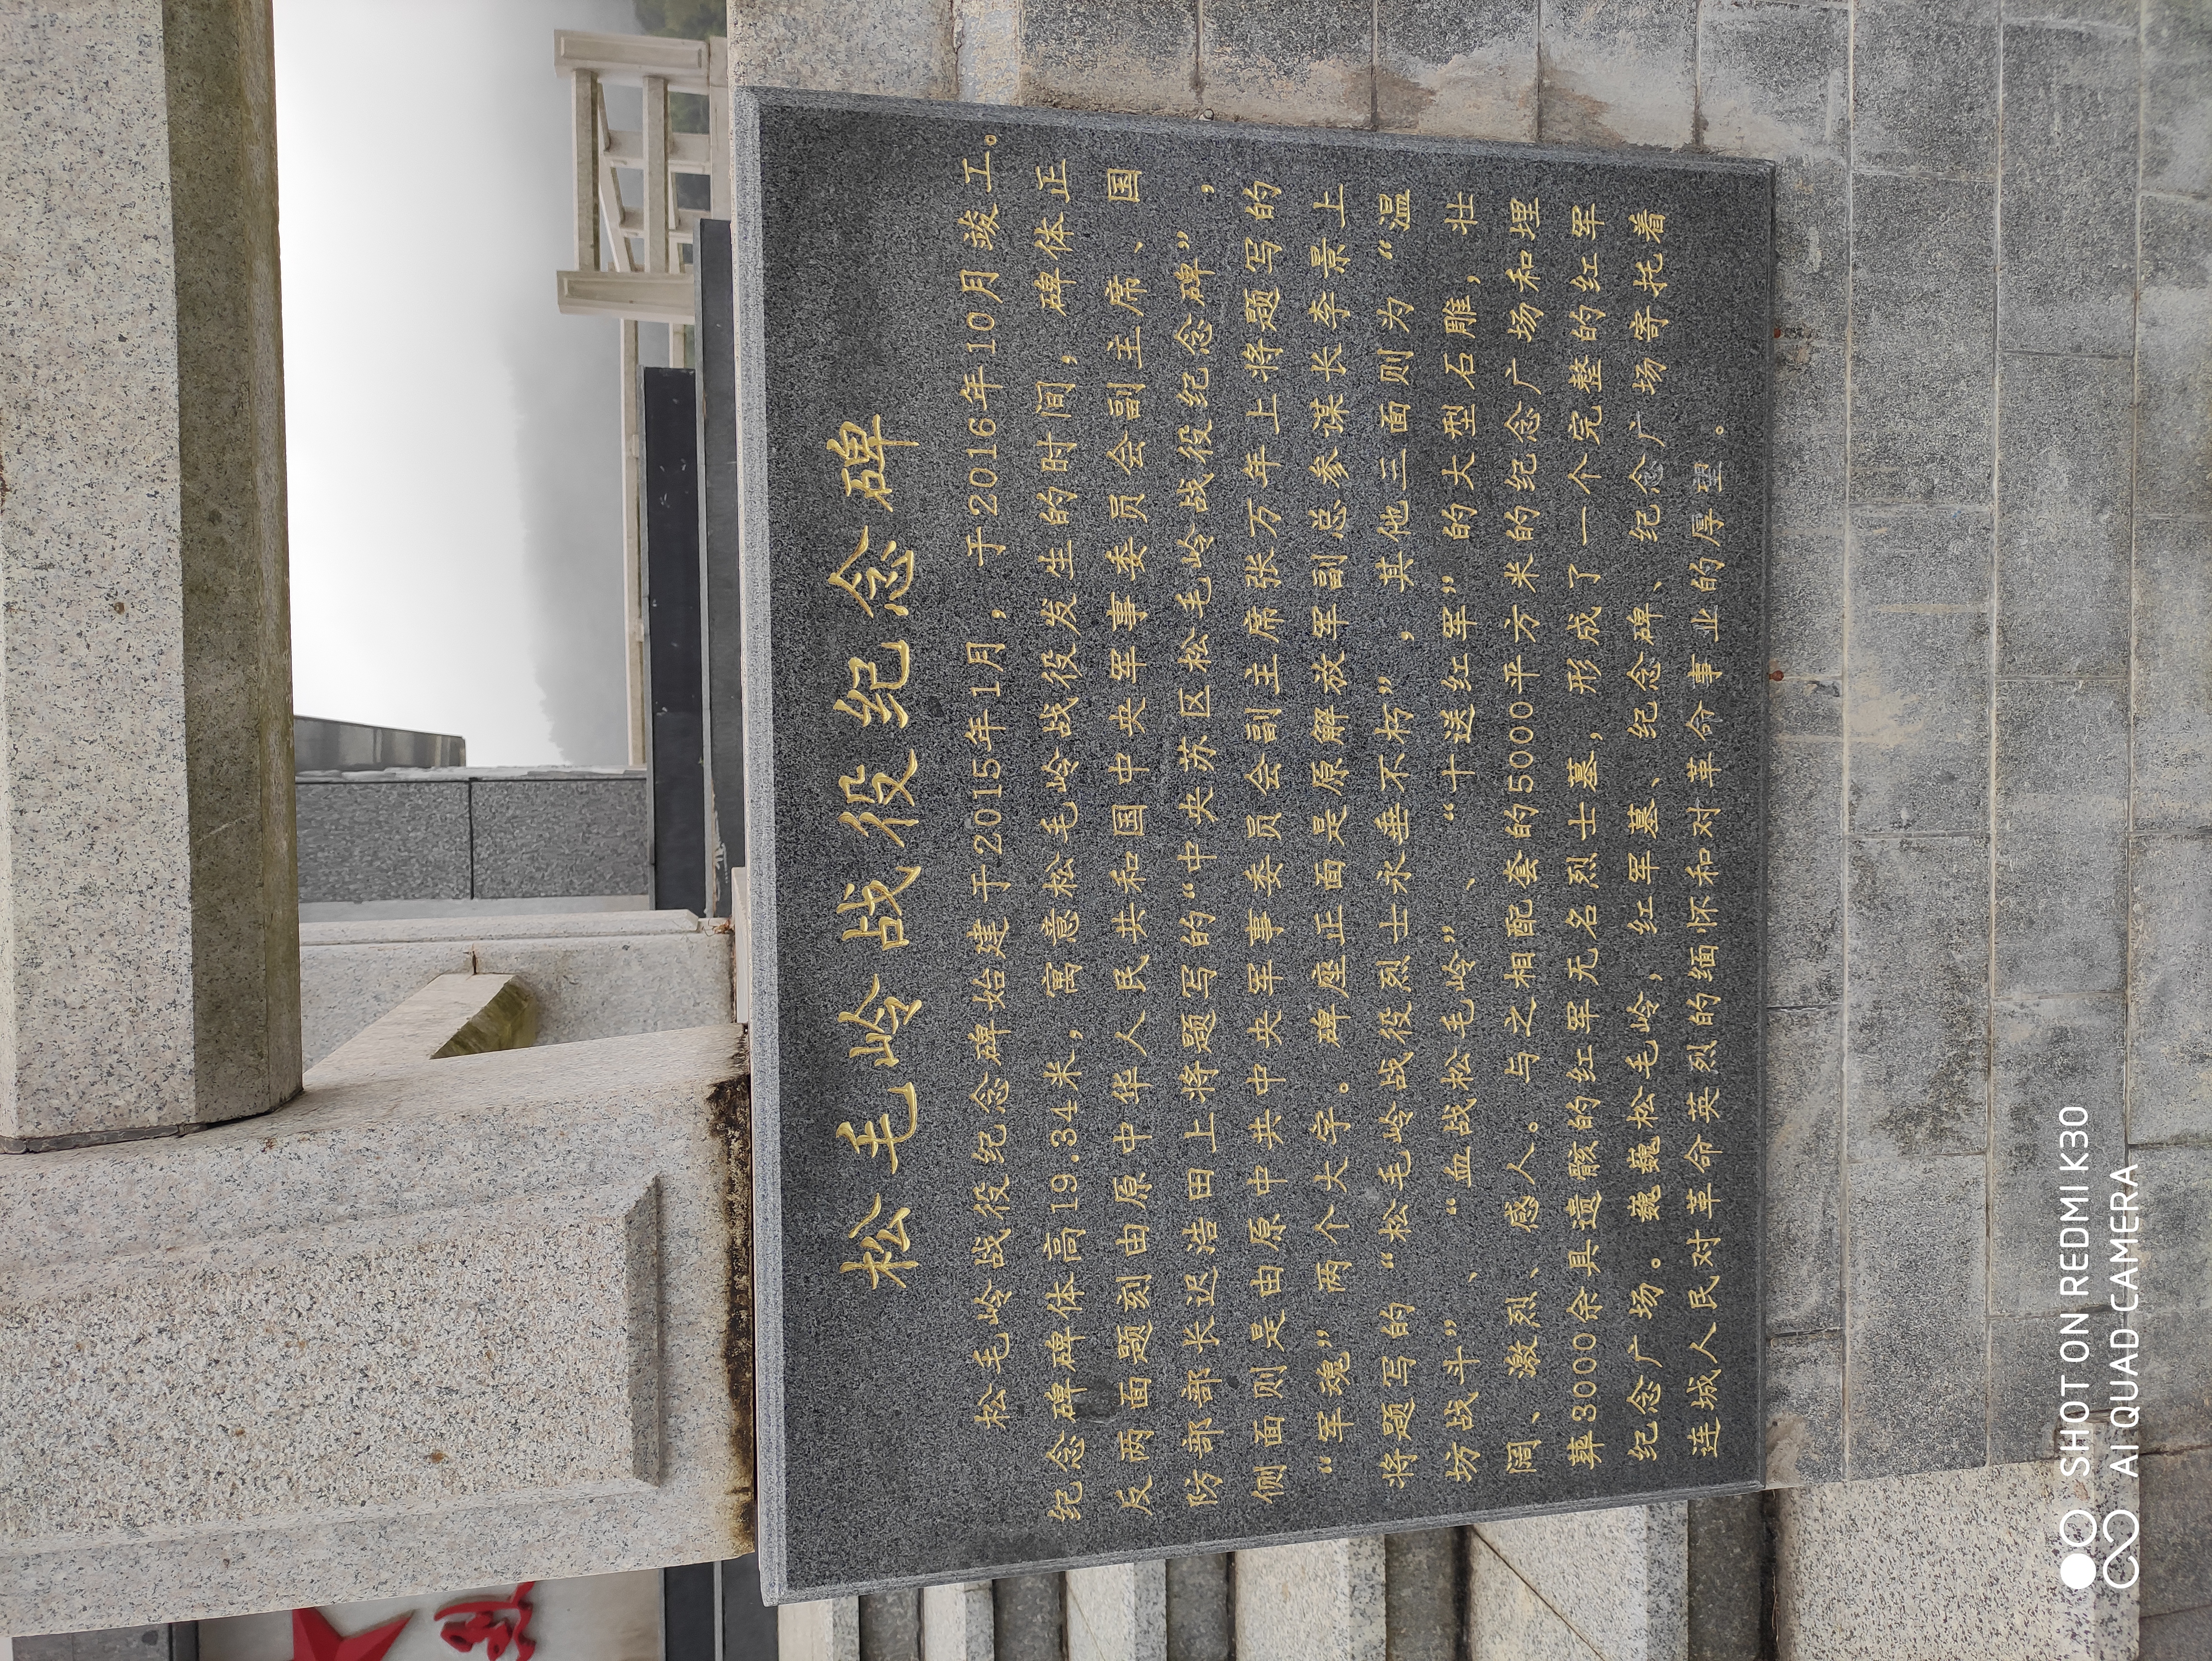 松毛岭战役纪念碑
松毛岭战役纪念碑始建于2015年1月，于2016年10月竣工。
纪念碑碑体高19.34米，寓意松毛岭战役发生的时间，碑体正
反两面题刻由原中华人民共和国中央军事委员会副主席、国
防部部长迟浩田上将题写的“中央苏区松毛岭战役纪念碑”，
侧面则是由原中共中央军事委员会副主席张万年上将题写的
“军魂”两个大字。碑座正面是原解放军副总参谋长李景上
将题写的“松毛岭战役烈士永垂不朽”，其他三面则为“温
坊战斗”、“血战松毛岭”、“十送红军”的大型石雕，壮
阔、激烈、感人。与之相配套的5000平方米的纪念广场和埋
葬3000余具遗骸的红军无名烈士墓，形成了一个完整的红军
纪念广场。巍巍松毛岭，红军墓、纪念碑、纪念广场寄托着
连城人民对革命英烈的缅怀和对革命事业的厚望。
SHOT ON REDMI K30
AI QUAD CAMERA